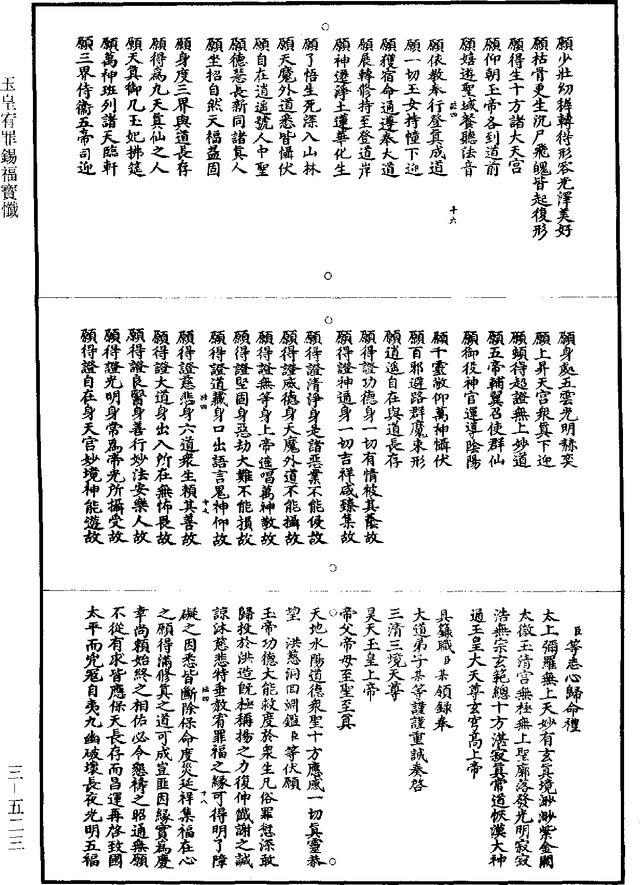 玉皇宥罪錫福寶懺
願少壯幼稚轉得形容光澤美好
願枯骨更生沉尸飛魄皆起復形
願得生十方諸大天宮
願仰朝玉帝各到道前
願嬉遊聖域餐聽法音
十六
願依教奉行登真成道
願一切玉女持幢下迎
願獲宿命通遵奉大道
願展轉修持至登道岸
願神遷淨土蓮華化生
願了悟生死深入山林
願天魔外道悉皆懾伏
願自在逍遙號人中聖
願德慧長新同諸真人
願坐招自然天福益固
願身度三界與道長存
願得為九天真仙之人
願天真御几玉妃拂筵
願萬神班列諸天臨軒
願三界侍衛五帝司迎
願身處五雲光明赫奕
願上昇天宮眾真下迎
願頓得超證無上妙道
願五帝輔翼召使群仙
願御役神官運導陰陽
願千靈敬仰萬神懾伏
願百邪避路群魔束形
願逍遙自在與道長存
願得證功德身一切有情被其蔭故
願得證神通身一切吉祥咸臻集故
願得證清淨身是諸惡業不能侵故
願得證威德身天魔外道不能攝故
願得證無等身上帝遙唱萬神敬故
願得證堅固身惡劫大難不能損故
願得證道藏身口出語言鬼神仰故
願得證慈悲身六道眾生賴其善故
願得證大道身出入所在無怖畏故
願得證良醫身善行妙法安樂人故
願得證光明身常為帝光所攝受故
願得證自在身天宮妙境神能遊故
臣等志心歸命禮
太上彌羅無上天妙有玄真境渺渺紫金闕
太微玉清宮無極無上聖廓落發光明寂寂
浩無宗玄範總十方湛寂真常道恢漠大神
通玉皇大天尊玄穹高上帝
具錄職臣某領錄奉
大道弟子某等謹謹重誠奏啓
三清三境天尊
昊天玉皇上帝
帝父帝母至聖至真
天地水陽道德眾聖十方應感一切真靈恭
望　洪慈洞回淵鑑臣等伏願
玉帝功德大能救度於眾生凡俗罪愆深敢
歸投於洪造既極稱揚之力復伸懺謝之誠
諒沐慈悲特垂敕宥罪福之緣可得明了障
礙之因悉皆斷除保命度災延祥集福在心
之願得滿修真之道可成豈匪因緣實為慶
幸尚賴始終之相佑必令懇禱之昭通無願
不從有求皆應保天長存而昌運再啓致國
太平而兇寇自夷九幽破壞長夜光明五福
三－五二三